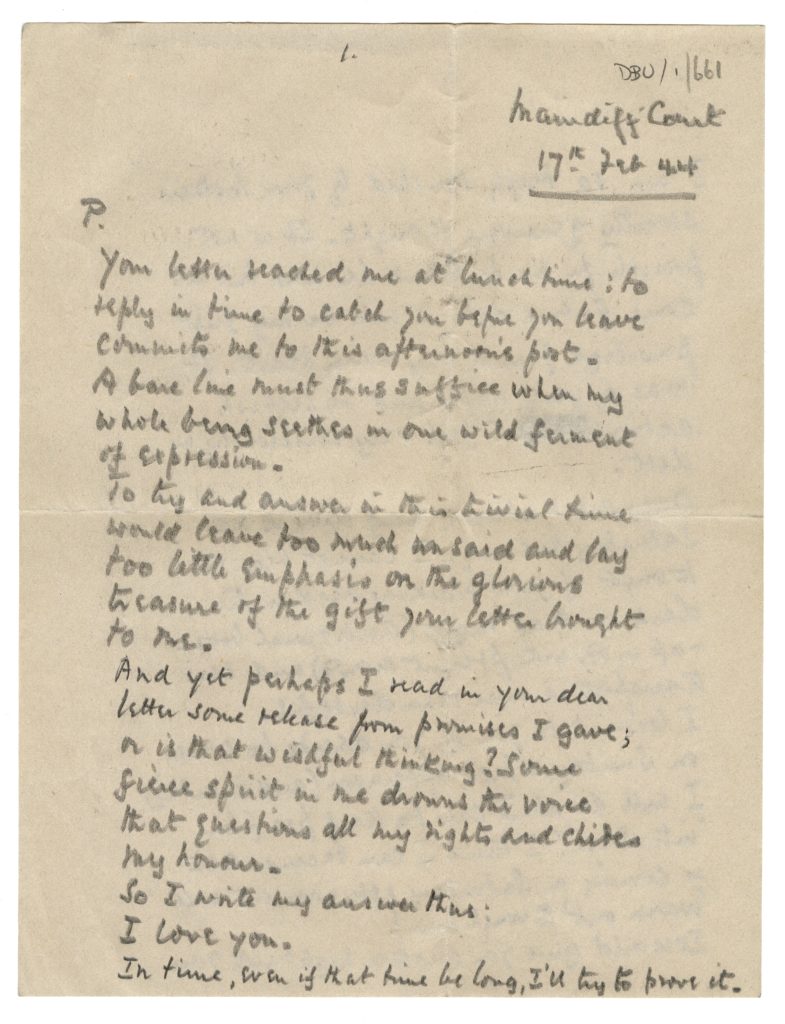 1.
DBU/1/661
Maindiff Court
17th Feb 44
P.
Your letter reached me at lunch time: to
reply in time to catch you before you leave
commits me to this afternoon's post.
A bare line must thus suffice when my
whole being seethes in one wild ferment
of expression.
To try and answer in this trivial time
would leave too much unsaid and lay
too little emphasis on the glorious
treasure of the gift your letter brought
to me.
And yet perhaps I read in your dear
letter some release from promises I gave;
or is that wishful thinking? Some
fierce spirit in me drowns the voice
that questions all my rights and chides
my honour.
So I write my answer thus:
I love you.
In time, even if that time be long, I'll try to prove it.